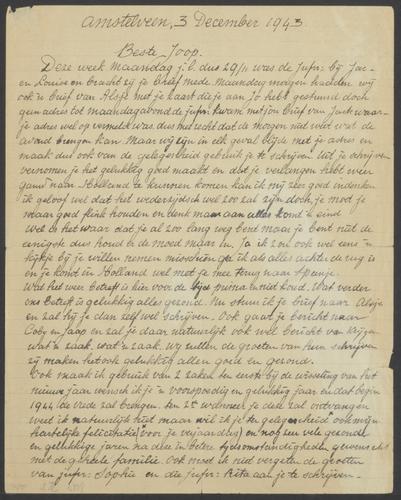 Amstelveen, 3 December 1943
Beste Joop.
Deze week Maandag j.l. dus 29/11 was de Jufr. bij Jac-
en Louise en bracht zij je brief mede Maandag morgen hadden wij
ook 'n brief van Alsje met je kaart die je aan Jo hebt gestuurd doch
geen adres tot maandagavond de Jufr. kwam met jou brief van Jack waar
je adres wel op vermeld was dus met recht dat de morgen niet wist wat de
avond brengen kan. Maar wij zijn in elk geval blijde met je adres en
maak dus ook van de gelegenheid gebruik je te schrijven. Uit je schrijven
vernomen je het gelukkig goed maakt en dat je verlangen hebt weer
gauw naar Holland te kunnen komen kan ik mij zeer goed indenken
ik geloof wel dat het wederzijdsch wel zoo zal zijn doch je moet je
maar goed flink houden en denk maar aan alles komt 'n eind
Wel is het waar dat je al zoo lang weg bent maar je bent niet de
eenigste dus houd er de moed maar in. Ja ik zou ook wel eens 'n
kijkje bij je willen nemen misschien ga ik als alles achter de rug is
en je komt in Holland wel met je mee terug naar Spanje.
Wat het weer betreft is hier voor de tijd prima en niet koud. Wat verder
ons betreft is gelukkig alles gezond. Nu stuur ik je brief naar Alsje
en zal hij je dan zelf wel schrijven. Ook gaat je bericht naar
Coby en Jaap en zal je daar natuurlijk ook wel bericht van krijgen
wat 'n zaak, wat 'n zaak. Wij zullen de groeten van hun schrijven
zij maken het ook gelukkig allen goed en gezond.
Ook maak ik gebruik van 2 zaken ten eerste bij de wisseling van het
nieuwe jaar wensch ik je 'n voorspoedig en gelukkig jaar en dat begin
1944 de vrede zal brengen. ten 2e wanneer je deze zal ontvangen
weet ik natuurlijk niet maar wil ik je te gelegenheid ook mijn
hartelijke felicitatie voor je verjaardag en nog zeer vele gezonde
en gelukkige jaren na deze in betere tijdsomstandigheden, gewenscht
met de geheele familie. Ook moet ik niet vergeten de groeten
van jufr. Sophie en die jufr. Rika aan je te schrijven.-